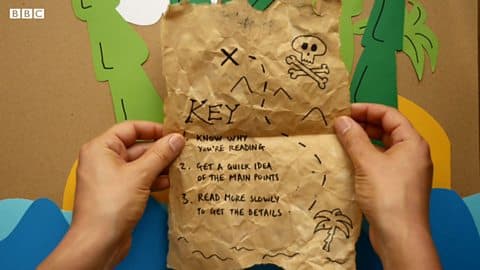 BBC
KEY
1. KNOW WHY
YOU'RE READING
2. GET A QUICK IDEA
OF THE MAIN POINTS
3. READ MORE SLOWLY
TO GET THE DETAILS